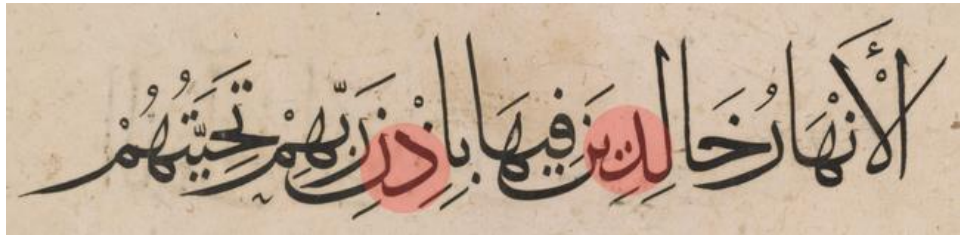 الْأَنْهَارُ خَالِدِينَ فِيهَا بِإِذْنِ رَبِّهِمْ تَحِيَّتُهُمْ